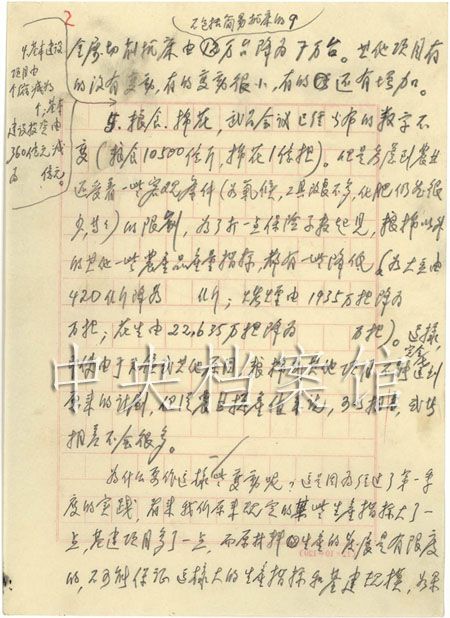 2
不包括简易机床的
4.基本建设
项目由
个缩减为
个，基本
建设投资由
360亿元减
为 亿元。
金属切削机床由13万台降为7万台。其他项目有
的没有变动，有的变动很小，有的还有增加。
5.粮食、棉花，武昌会议已经公布的数字不
变（粮食10500亿斤，棉花1亿担）。但是考虑到农业
还受着一些客观条件（如气候，工具改良不多，化肥仍然很
少，等等）的限制，为了打一点保险系数起见，粮棉以外
的其他一些农产品产量指标，都有一些降低（如大豆由
420亿斤降为 亿斤；烤烟由1935万担降为
万担；花生由22,635万担降为 万担）。这样，
由于 其他原因，粮棉 其他项目 达到
原来的计划，但 农 产值来说， 相 ， 其
相差不会很多。
为什么要作这样些变动呢？这是因为经过了第一季
度的实践，看来我们原来规定的某些生产指标大了一
点，基建项目多了一点，而原材料生产的发展是有限度
的，不可能保证这样大的生产指标和基建规模，如果
中央档案馆